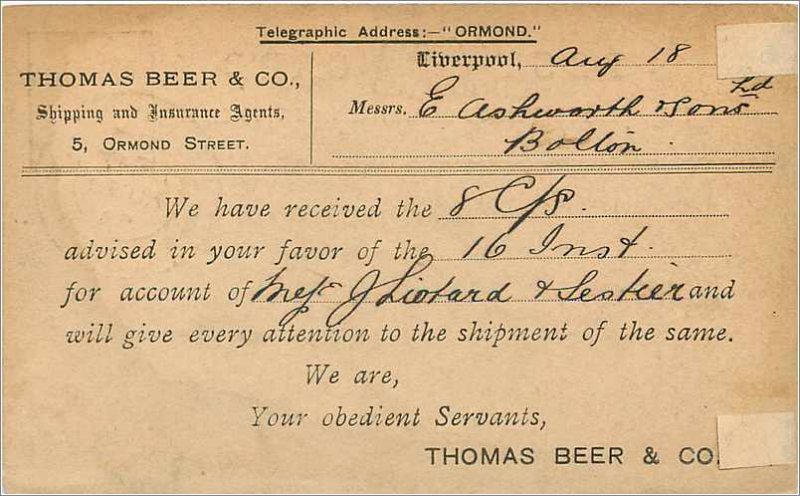 Telegraphic Address:—"ORMOND."
THOMAS BEER & CO.,
Shipping and Insurance Agents,
5, ORMOND STREET.
Liverpool, Aug 18
Messrs. E Ashworth & Sons Ld
Bolton
We have received the 8 C/s.
advised in your favor of the 16 Inst.
for account of Mess J Liotard & Sestier and
will give every attention to the shipment of the same.
We are,
Your obedient Servants,
THOMAS BEER & CO.